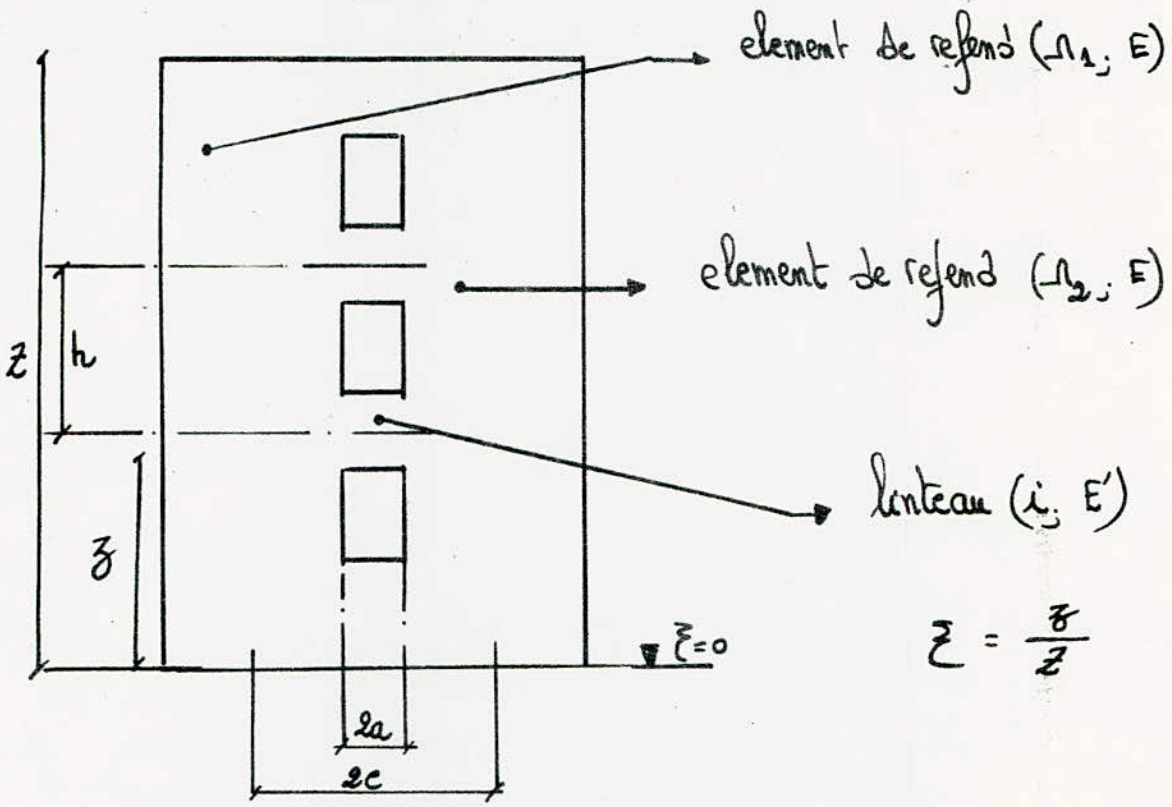 element de refend (Ω₁; E)
element de refend (Ω₂; E)
Z
h
linteau (i; E')
z
ξ = z/Z
ξ=0
2a
2c